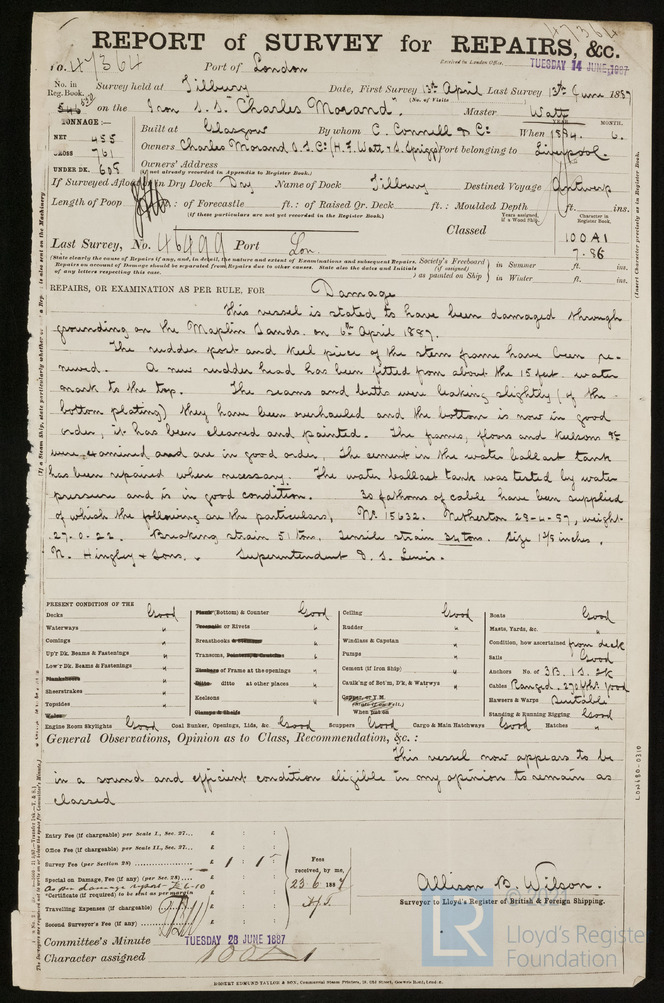 REPORT of SURVEY for REPAIRS, &c.
47364
No. 47364 Port of London Received in London Office, TUESDAY 14 JUNE, 1887
No. in Reg. Book. Survey held at Tilbury Date, First Survey 13th April Last Survey 13th June 1887
(No. of Visits
on the Iron S.S. "Charles Morand". Master Watt
TONNAGE:— Built at Glasgow By whom C. Connell & Co When 1884. 6.
YEAR. MONTH.
NET 455
GROSS 761 Owners Charles Morand S.S. Co (H.F. Watt & S. Sprigg) Port belonging to Liverpool.
UNDER DK. 608 Owners' Address
(If not already recorded in Appendix to Register Book.)
If Surveyed Afloat or in Dry Dock Dry Name of Dock Tilbury Destined Voyage Antwerp
Length of Poop ft.: of Forecastle ft.: of Raised Qr. Deck ft.: Moulded Depth ft. ins.
(If these particulars are not yet recorded in the Register Book.)
Years assigned, if a Wood Ship. Character in Register Book.
Classed 100A1
7.86
Last Survey, No. 46499 Port Lon.
(State clearly the cause of Repairs if any, and, in detail, the nature and extent of Examinations and subsequent Repairs.
Repairs on account of Damage should be separated from Repairs due to other causes. State also the dates and Initials
of any letters respecting this case.
Society's Freeboard (if assigned) as painted on Ship } in Summer ft. ins.
in Winter ft. ins.
REPAIRS, OR EXAMINATION AS PER RULE, FOR Damage
This vessel is stated to have been damaged through
grounding on the Maplin Sands. on 6th April 1887.
The rudder post and keel piece of the stern frame have been re-
newed. A new rudder head has been fitted from about the 15 feet water
mark to the top. The seams and butts were leaking slightly (of the
bottom plating) they have been overhauled and the bottom is now in good
order, it has been cleaned and painted. The frames, floors and keelsons &c
were examined and are in good order, The cement in the water ballast tank
has been repaired where necessary. The water ballast tank was tested by water
pressure and is in good condition. 30 fathoms of cable have been supplied
of which the following are the particulars, No. 15632. Netherton 28-4-87, weight-
27-0-22. Breaking strain 51 tons, Tensile strain 34 tons. Size 1 9/16 inches,
N. Hingley & Sons. Superintendent D. S. Lewis.
PRESENT CONDITION OF THE
Decks Good
Waterways "
Comings "
Up'r Dk. Beams & Fastenings "
Low'r Dk. Beams & Fastenings "
Sheerstrakes "
Topsides "
Plank (Bottom) & Counter Good
Treenails or Rivets "
Breasthooks "
Transoms, "
of Frame at the openings "
ditto at other places "
Keelsons "
Clamps & Shelfs
Ceiling Good
Rudder "
Windlass & Capstan "
Pumps "
Cement (if Iron Ship) "
Caulk'ng of Bot'm, D'k, & Watrwys "
Copper, or Y.M.
When put on
Boats Good
Masts, Yards, &c. "
Condition, how ascertained from deck
Sails Good
Anchors No. of 3B. 1S. 2K
Cables Ranged. 270 fths good
Hawsers & Warps Suitable
Standing & Running Rigging Good
Engine Room Skylights Good Coal Bunker, Openings, Lids, &c. Good Scuppers Good Cargo & Main Hatchways Good Hatches "
General Observations, Opinion as to Class, Recommendation, &c.:
This vessel now appears to be
in a sound and efficient condition eligible in my opinion to remain as
classed
Entry Fee (if chargeable) per Scale I., Sec. 27... £ : :
Office Fee (if chargeable) per Scale II., Sec. 27... £ : :
Survey Fee (per Section 28) £ 1 : 1 :
Special on Damage, Fee (if any) (per Sec. 28) £
As per damage report
*Certificate (if required) to be sent as per margin
Travelling Expenses (if chargeable) £
Second Surveyor's Fee (if any) £
Fees received by me,
23.6.1887
Allison B. Wilson.
Surveyor to Lloyd's Register of British & Foreign Shipping.
Committee's Minute TUESDAY 28 JUNE 1887
Character assigned 100A1
LON680-0310
LR
Lloyd's Register
Foundation
ROBERT EDMUND TAYLOR & SON, Commercial Steam Printers, 19, Old Street, Goswell Road, London.